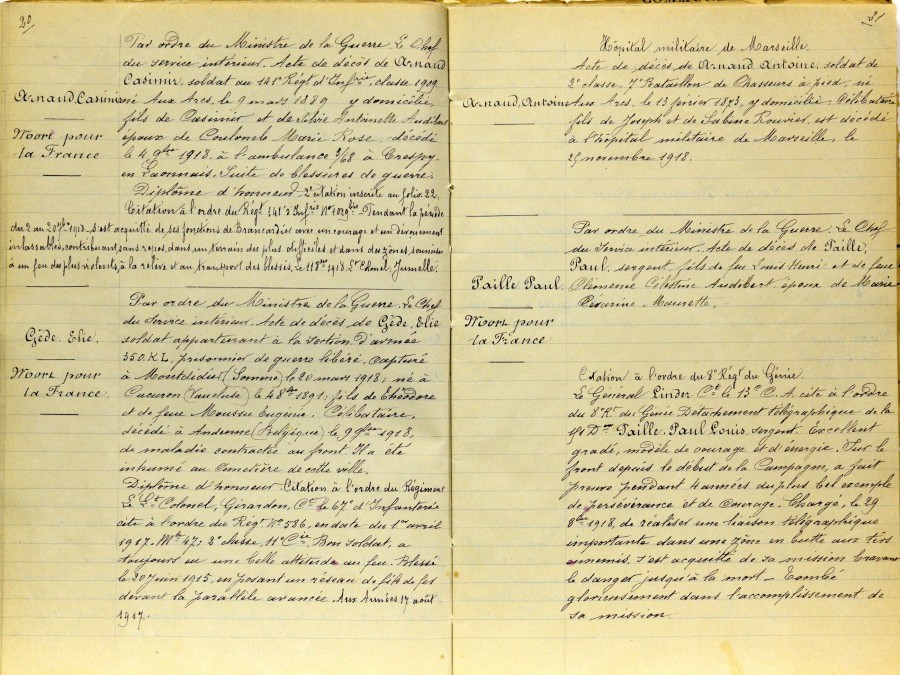 20
Par ordre du Ministre de la Guerre. Le Chef
du service intérieur. Acte de décès de Arnaud
Casimir, soldat au 141e Régt d'Infrie, classe 1909
Arnaud, Casimir né Aux Arcs, le 9 mars 1889 y domicilié,
fils de Casimir et de Silvie Antoinette Audibert
Mort pour
la France
époux de Coulomb Marie Rose, décédé
le 4 9bre 1918, à l'ambulance 3/68 à Crespy-
en Laonnais. Suite de blessures de guerre.
Diplôme d'honneur - 2e citation inscrite au folio 22.
Citation à l'ordre du Régt 141e d'Infrie No 1029 bis - Pendant la période
du 2 au 20 7bre 1918, s'est acquitté de ses fonctions de Brancardier avec un courage et un dévouement
inlassables, contribuant sans repos, dans un terrain des plus difficiles et dans des zones soumises
à un feu des plus violents, à la relève et au transport des blessés. Le 11 8bre 1918. Lt Colonel, Jumelle.
Par ordre du Ministre de la Guerre. Le Chef
du Service intérieur. Acte de décès de Gède, Elie
Gède Elie.
soldat appartenant à la section D'armée
350. K L, prisonnier de guerre libéré, capturé
Mort pour
la France
à Montdidier (Somme) le 20 mars 1918; né à
Cucuron (Vaucluse) le 4 8bre 1891, fils de Théodore
et de feue Mousse Eugénie. Célibataire,
décédé à Andenne (Belgique) le 9 9bre 1918,
de maladie contractée au front. Il a été
inhumé au Cimetière de cette ville.
Diplôme d'honneur. Citation à l'ordre du Régiment
Le Lt Colonel, Girardon, Ct le 67e d'Infanterie
cite à l'ordre du Régt No 586, en date du 1er avril
1917. Mle 47; 2e classe, 11e Cie Bon soldat, a
toujours eu une belle attitude au feu. Blessé
le 20 juin 1915, en posant un réseau de fils de fer
devant la parallèle avancée. Aux Armées 17 août
1917.
21
Hôpital militaire de Marseille.
Acte de décès de Arnaud Antoine, soldat de
2e classe, 7e Bataillon de Chasseurs à pied, né
Arnaud, Antoine Aux Arcs, le 13 février 1873, y domicilié. Célibataire
fils de Joseph et de Sabine Rouvier, est décédé
à l'hôpital militaire de Marseille, le
25 novembre 1918.
Par ordre du Ministre de la Guerre. Le Chef
du Service intérieur. Acte de décès de Paille,
Paul, sergent, fils de feu Louis Henri et de feue
Paille Paul. Clémence Célestine Audibert, époux de Marie
Césarine Maunette.
Mort pour
la France
Citation à l'ordre du 8e Régt du Génie.
Le Général Linder Ct le 13e C. A cite à l'ordre
du 8e Rt de Génie Détachement télégraphique de la
Don Paille. Paul Louis, sergent. Excellent
gradé, modèle de courage et d'énergie. Sur le
front depuis le début de la Campagne, a fait
preuve pendant 4 années du plus bel exemple
de persévérance et de courage. Chargé, le 29
8bre 1918, de réaliser une liaison télégraphique
importante dans une zône en butte aux tirs
ennemis, s'est acquitté de sa mission bravant
le danger jusqu'à la mort - Tombé
glorieusement dans l'accomplissement de
sa mission.